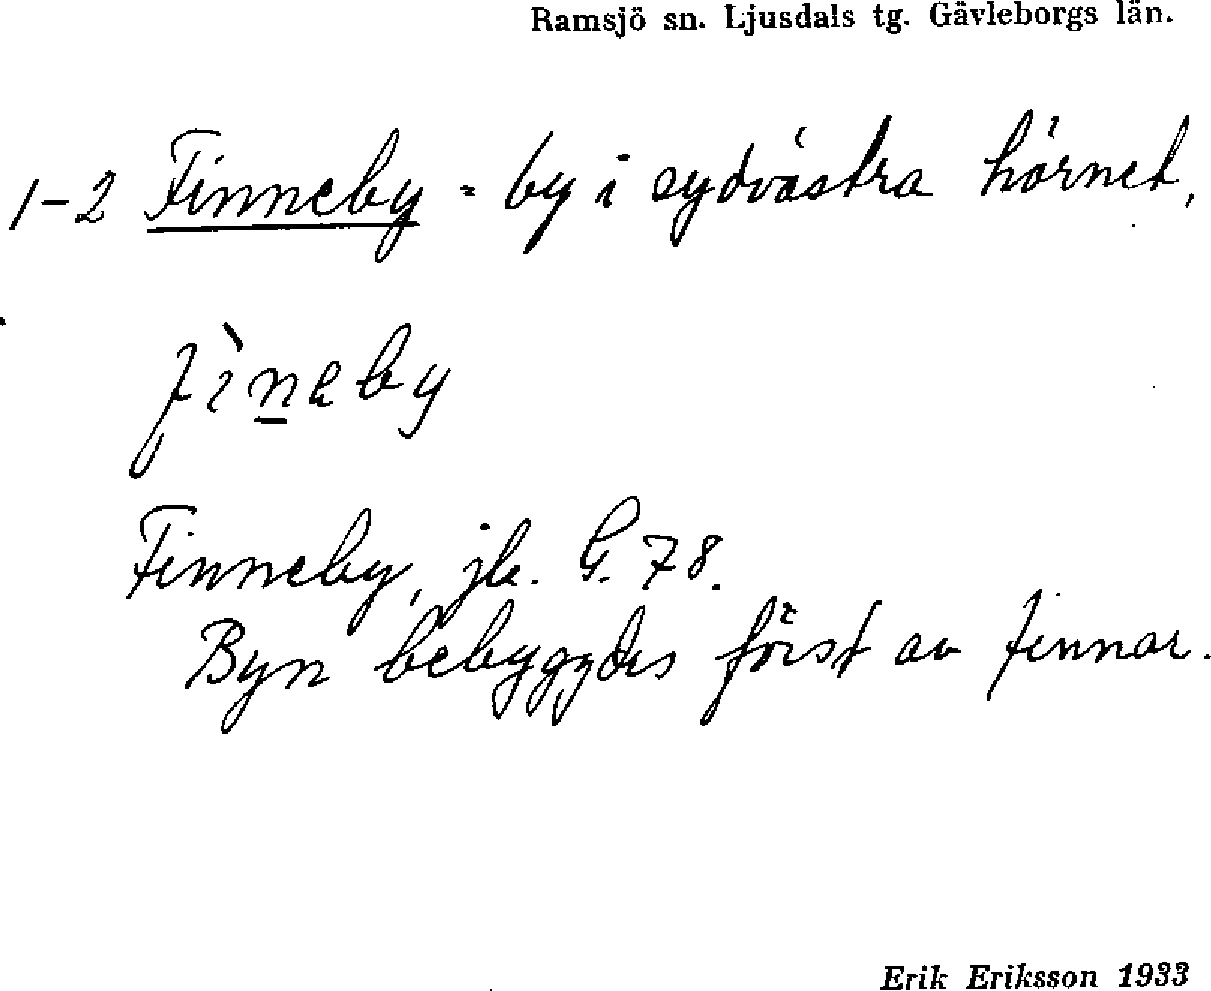 Ramsjö sn. Ljusdals tg. Gävleborgs län.
1-2 Finneby = by i sydvästra hörnet,
fìn̲eby
Finneby, jb. G. 78.
Byn bebyggdes först av finnar.
Erik Eriksson 1933